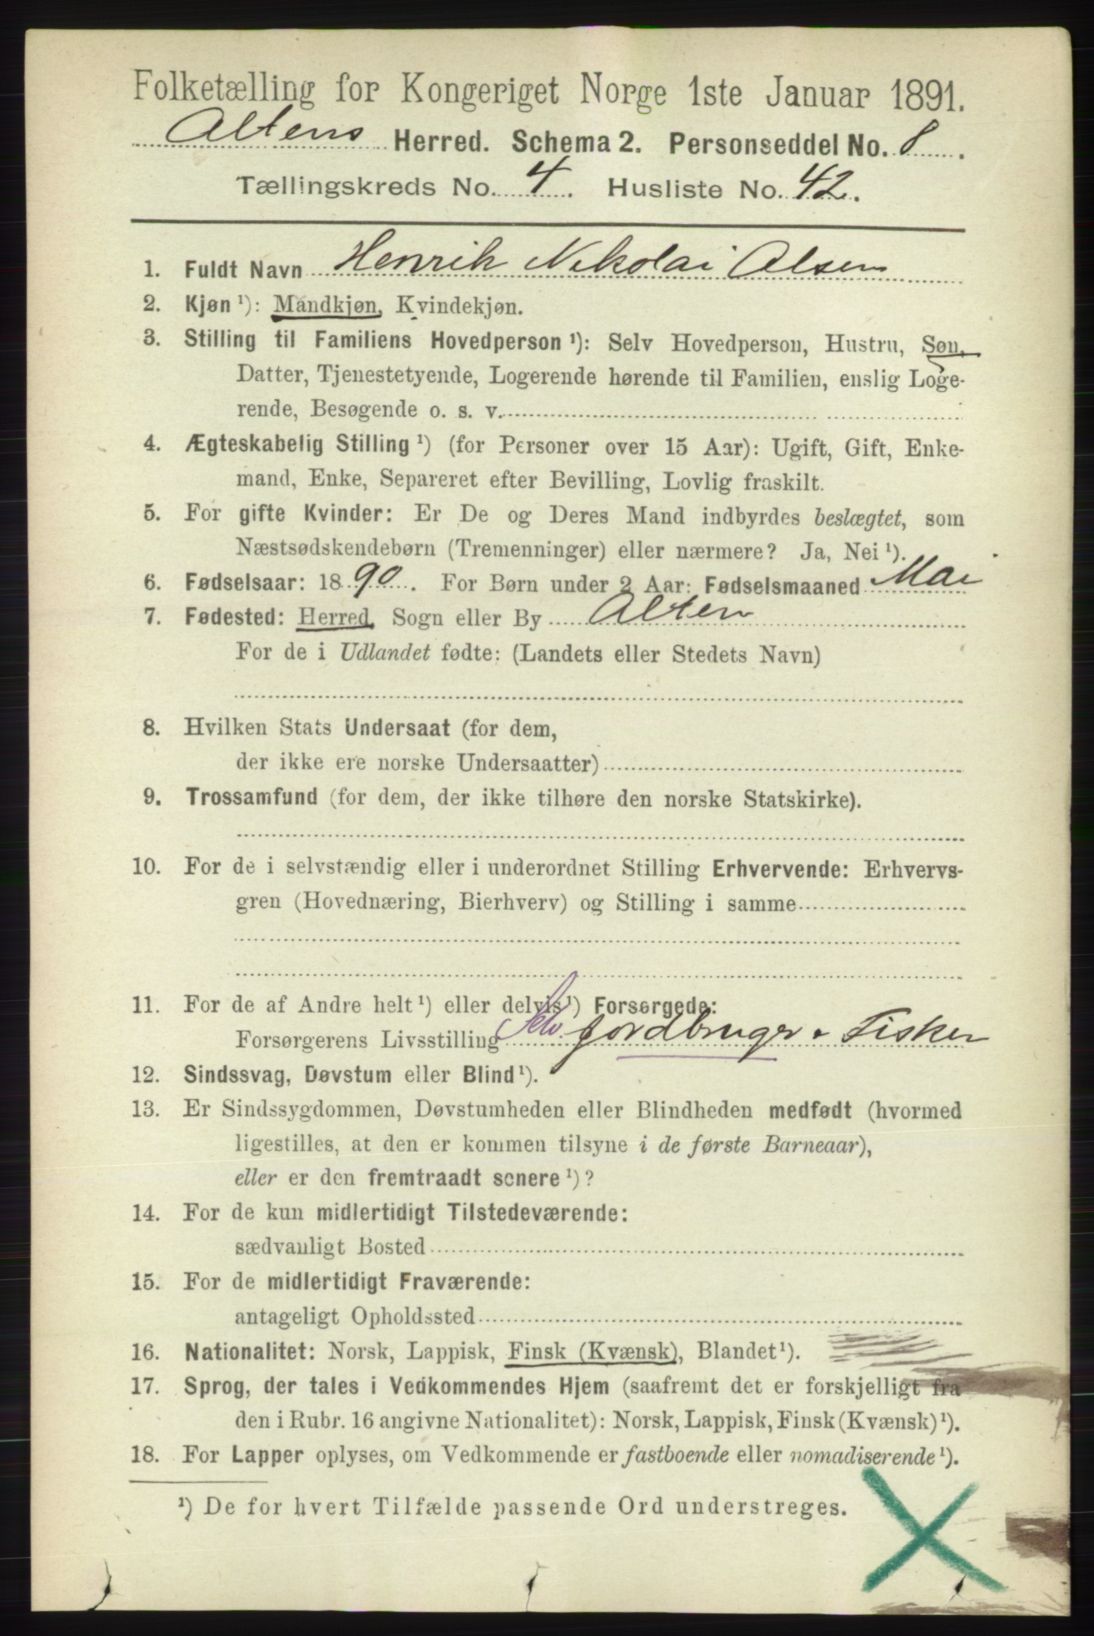 Folketælling for Kongeriget Norge 1ste Januar 1891.
Altens Herred. Schema 2. Personseddel No. 8.
Tællingskreds No. 4. Husliste No. 42.
1. Fuldt Navn Henrik Nikolai Olsen
2. Kjøn¹): Mandkjøn, Kvindekjøn.
3. Stilling til Familiens Hovedperson¹): Selv Hovedperson, Hustru, Søn,
Datter, Tjenestetyende, Logerende hørende til Familien, enslig Loge-
rende, Besøgende o. s. v.
4. Ægteskabelig Stilling¹) (for Personer over 15 Aar): Ugift, Gift, Enke-
mand, Enke, Separeret efter Bevilling, Lovlig fraskilt.
5. For gifte Kvinder: Er De og Deres Mand indbyrdes beslægtet, som
Næstsødskendebørn (Tremenninger) eller nærmere? Ja, Nei¹).
6. Fødselsaar: 1890. For Børn under 2 Aar: Fødselsmaaned Mai
7. Fødested: Herred, Sogn eller By Alten
For de i Udlandet fødte: (Landets eller Stedets Navn)
8. Hvilken Stats Undersaat (for dem,
der ikke ere norske Undersaatter)
9. Trossamfund (for dem, der ikke tilhøre den norske Statskirke).
10. For de i selvstændig eller i underordnet Stilling Erhvervende: Erhvervs-
gren (Hovednæring, Bierhverv) og Stilling i samme
11. For de af Andre helt¹) eller delvis¹) Forsørgede:
Forsørgerens Livsstilling Selv. jordbruger & Fisker
12. Sindssvag, Døvstum eller Blind¹).
13. Er Sindssygdommen, Døvstumheden eller Blindheden medfødt (hvormed
ligestilles, at den er kommen tilsyne i de første Barneaar),
eller er den fremtraadt senere¹)?
14. For de kun midlertidigt Tilstedeværende:
sædvanligt Bosted
15. For de midlertidigt Fraværende:
antageligt Opholdssted
16. Nationalitet: Norsk, Lappisk, Finsk (Kvænsk), Blandet¹).
17. Sprog, der tales i Vedkommendes Hjem (saafremt det er forskjelligt fra
den i Rubr. 16 angivne Nationalitet): Norsk, Lappisk, Finsk (Kvænsk)¹).
18. For Lapper oplyses, om Vedkommende er fastboende eller nomadiserende¹).
¹) De for hvert Tilfælde passende Ord understreges.